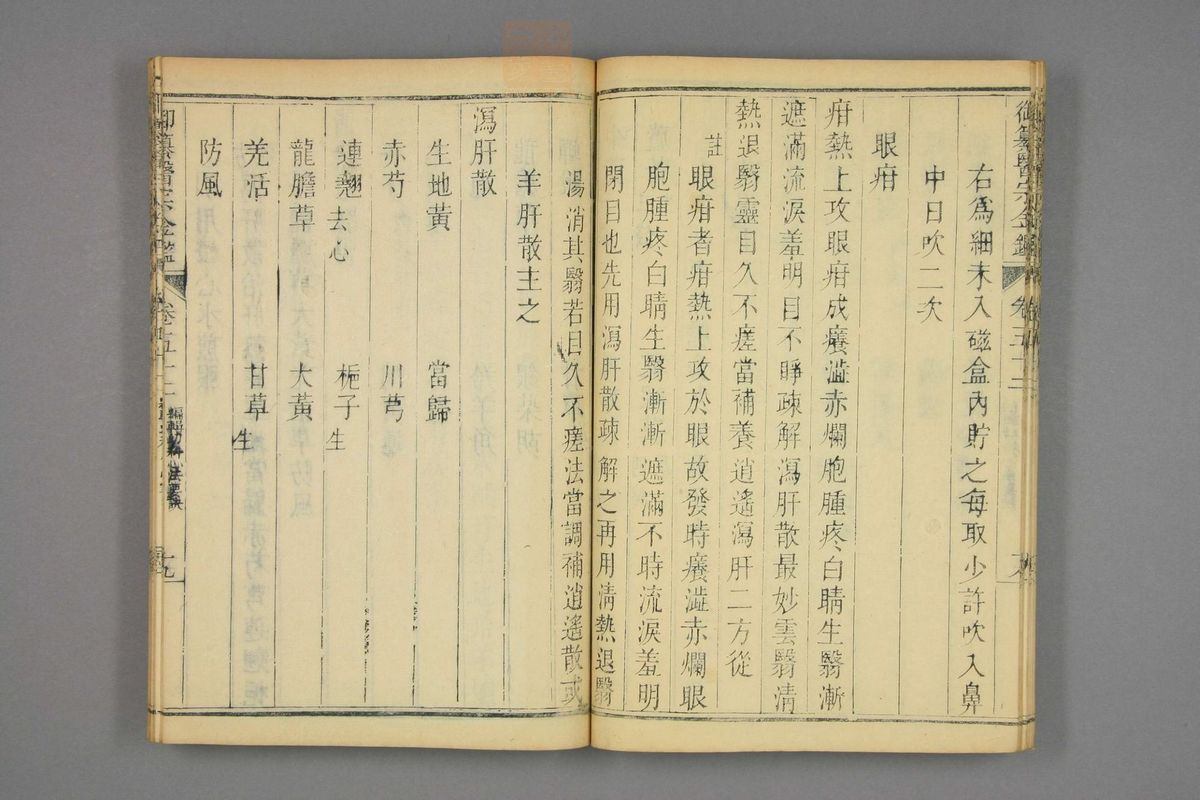 御纂醫宗金鑑
卷五十二
右爲細末入磁盒內貯之每取少許吹入鼻
中日吹二次
眼疳
疳熱上攻眼疳成癢澁赤爛胞腫疼白睛生翳漸
遮滿流淚羞明目不睜疎解瀉肝散最妙雲翳清
熱退翳靈目久不瘥當補養逍遙瀉肝二方從
註眼疳者疳熱上攻於眼故發時癢澁赤爛眼
胞腫疼白睛生翳漸漸遮滿不時流淚羞明
閉目也先用瀉肝散疎解之再用清熱退翳
湯消其翳若目久不瘥法當調補逍遙散或
羊肝散主之
瀉肝散
生地黃 當歸
赤芍 川芎
連翹去心 梔子生
龍膽草 大黃
羌活 甘草生
防風
御纂醫宗金鑑
卷五十二
編輯幼科心法要訣
十九